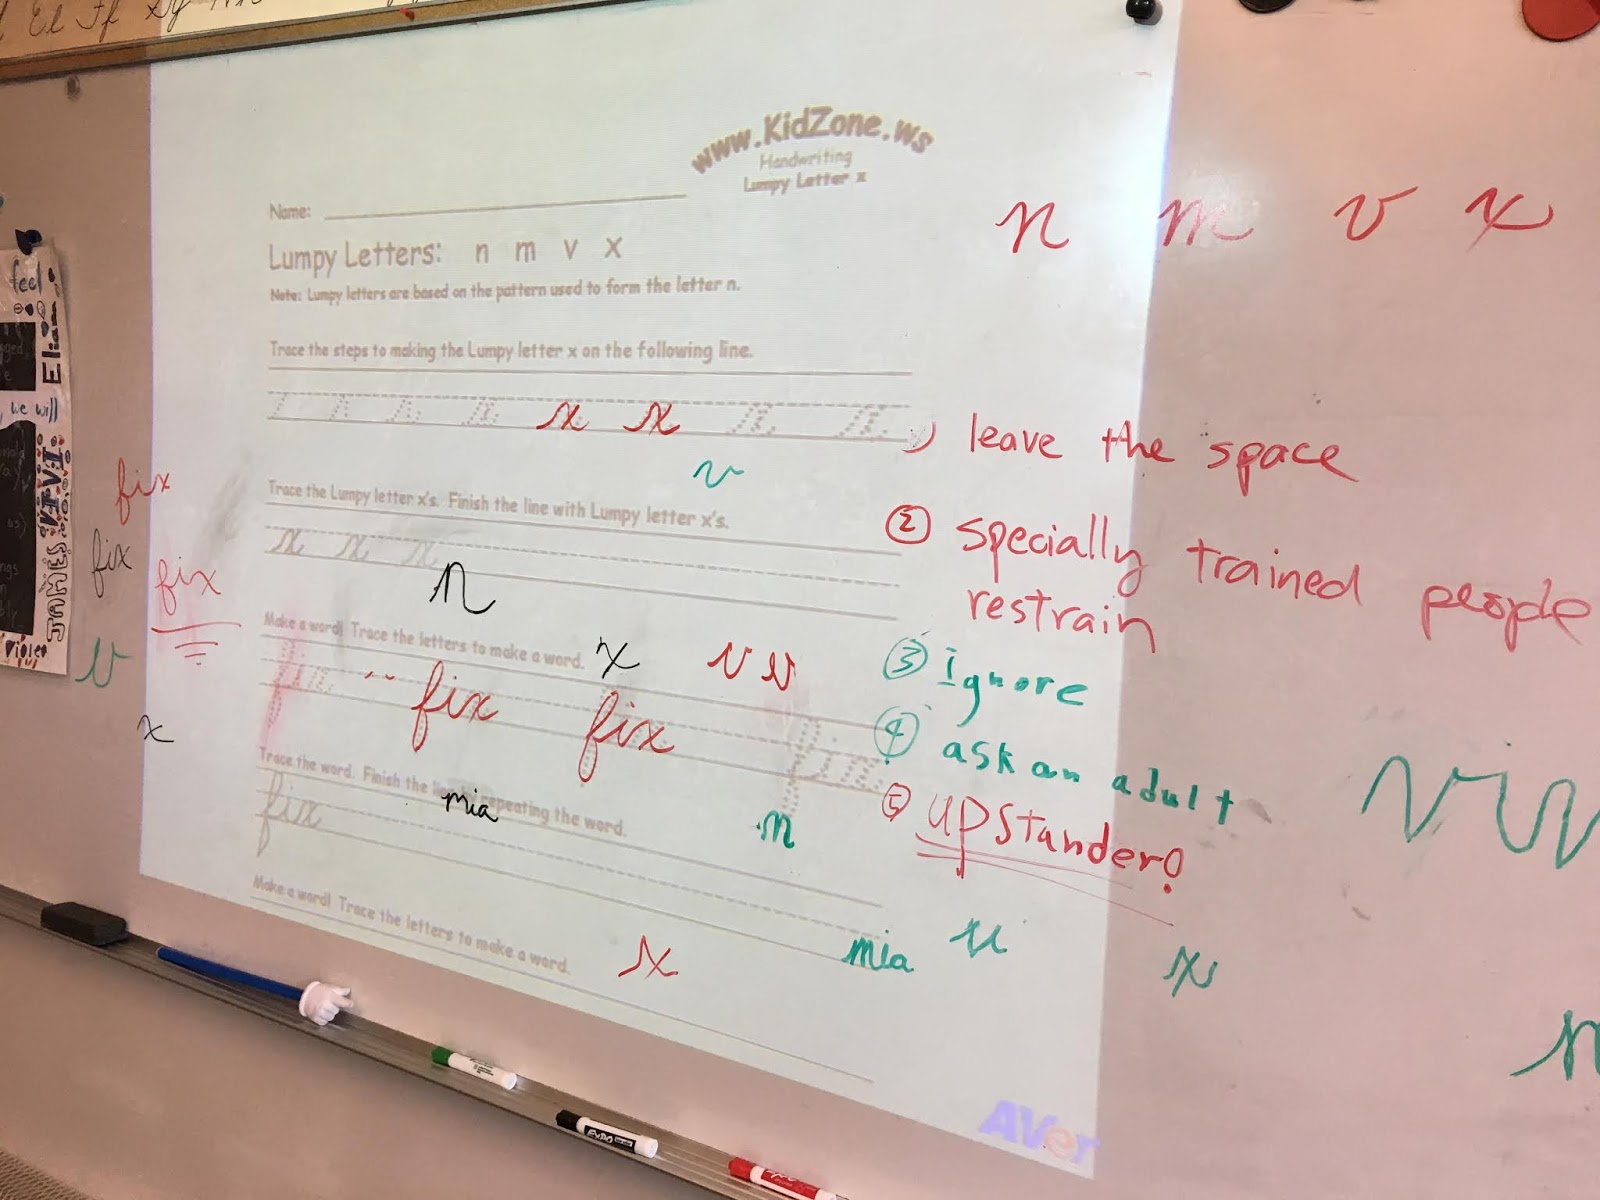 El Ff
www.KidZone.ws
Handwriting
Lumpy Letter x
Name:
Lumpy Letters: n m v x
Note: Lumpy letters are based on the pattern used to form the letter n.
n m v x
Trace the steps to making the Lumpy letter x on the following line.
x x
leave the space
v
Trace the Lumpy letter x's. Finish the line with Lumpy letter x's.
x x x
n
② specially trained people
restrain
Make a word! Trace the letters to make a word.
x v v
③ ignore
fix fix
④ ask an adult
Trace the word. Finish the line by repeating the word.
fix
mia
n
⑤ upstander!
Make a word! Trace the letters to make a word.
x
mia
x
fix
fix
fix
v
x
feel
we will
Elian
VIVI
JAMES
Violet
AVer
EXPO